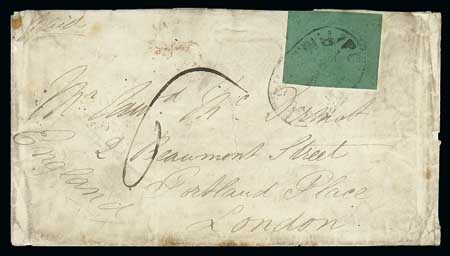 Paid
6
Mr Mc Dermot
2 Beaumont Street
Portland Place
London
England